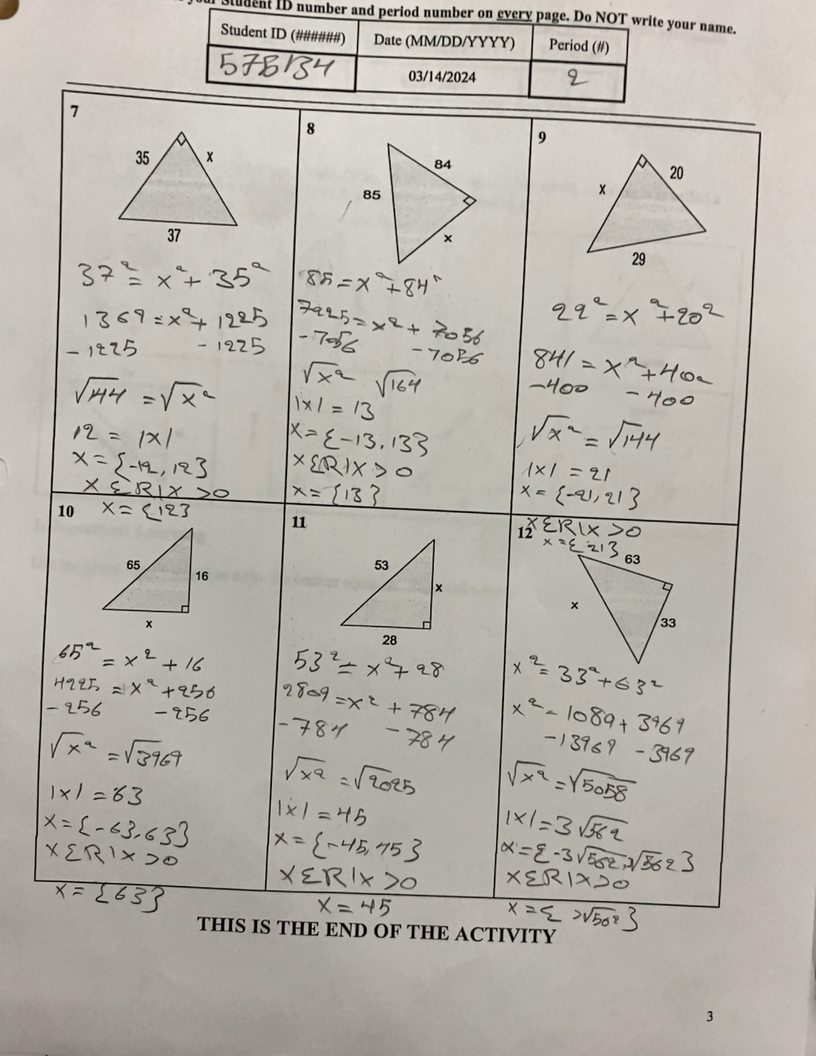 your Student ID number and period number on every page. Do NOT write your name.
Student ID (######) Date (MM/DD/YYYY) Period (#)
578134 03/14/2024 2
7
35 x
37
37² = x² + 35²
1369 = x² + 1225
-1225 -1225
√144 = √x²
12 = |x|
x = {-12, 12}
x ∈ R | x > 0
x = {12}
8
84
85
x
85 = x² + 84²
7225 = x² + 7056
-7056 -7056
√x² √164
|x| = 13
x = {-13, 13}
x ∈ R | x > 0
x = {13}
9
20
x
29
29² = x² + 20²
841 = x² + 400
-400 -400
√x² = √144
|x| = 21
x = {-21, 21}
x ∈ R | x > 0
x = {21}
10
65
16
x
65² = x² + 16
4225 = x² + 256
-256 -256
√x² = √3969
|x| = 63
x = {-63, 63}
x ∈ R | x > 0
x = {63}
11
53
x
28
53² = x² + 28
2809 = x² + 784
-784 -784
√x² = √2025
|x| = 45
x = {-45, 45}
x ∈ R | x > 0
x = 45
12
63
x
33
x² = 33² + 63²
x² = 1089 + 3969
-13969 -3969
√x² = √5058
|x| = 3√562
x = {-3√562, 3√562}
x ∈ R | x > 0
x = { 3√562 }
THIS IS THE END OF THE ACTIVITY
3